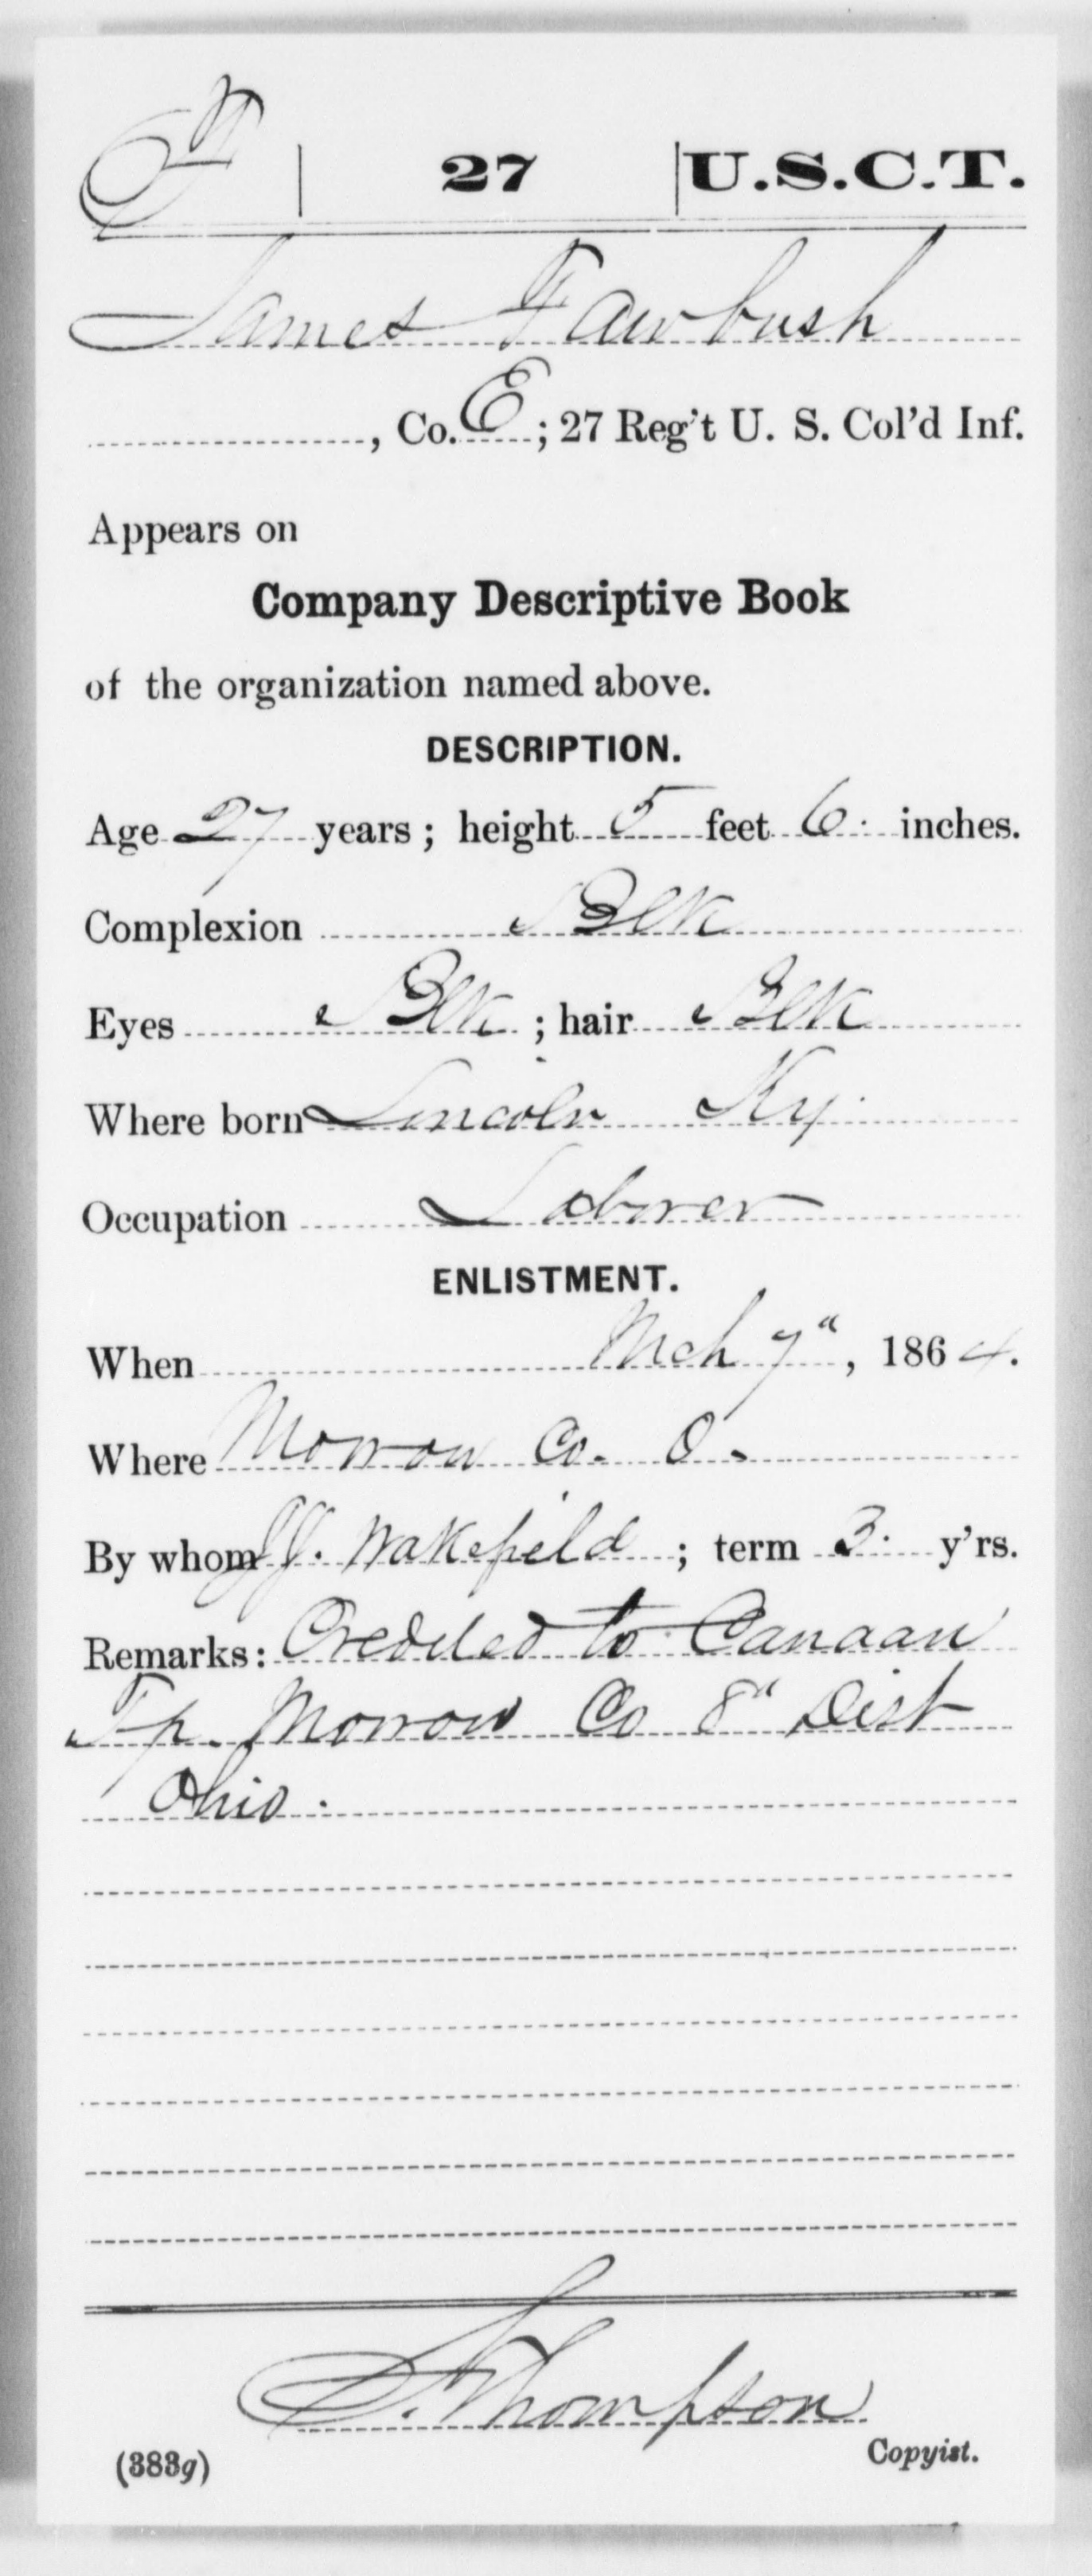 F | 27 | U.S.C.T.
James Fawbush
, Co. E ; 27 Reg't U. S. Col'd Inf.
Appears on
Company Descriptive Book
of the organization named above.
DESCRIPTION.
Age 27 years; height 5 feet 6 inches.
Complexion Blk
Eyes Blk ; hair Blk
Where born Lincoln Ky.
Occupation Laborer
ENLISTMENT.
When Mch 7", 1864.
Where Morrow Co. O.
By whom J.J. Wakefield ; term 3 y'rs.
Remarks: Credited to Canaan
Tp. Morrow Co 8" Dist
Ohio.
S. Thompson
(383g) Copyist.